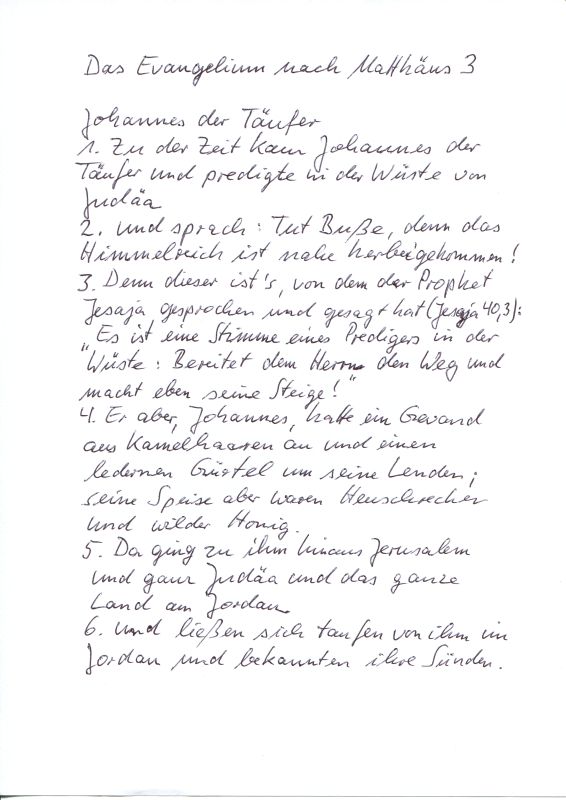 Das Evangelium nach Matthäus 3
Johannes der Täufer
1. Zu der Zeit kam Johannes der
Täufer und predigte in der Wüste von
Judäa
2. und sprach: Tut Buße, denn das
Himmelreich ist nahe herbeigekommen!
3. Denn dieser ist's, von dem der Prophet
Jesaja gesprochen und gesagt hat (Jesaja 40,3):
"Es ist eine Stimme eines Predigers in der
Wüste: Bereitet dem Herrn den Weg und
macht eben seine Steige!"
4. Er aber, Johannes, hatte ein Gewand
aus Kamelhaaren an und einen
ledernen Gürtel um seine Lenden;
seine Speise aber waren Heuschrecken
und wilder Honig.
5. Da ging zu ihm hinaus Jerusalem
und ganz Judäa und das ganze
Land am Jordan
6. und ließen sich taufen von ihm im
Jordan und bekannten ihre Sünden.